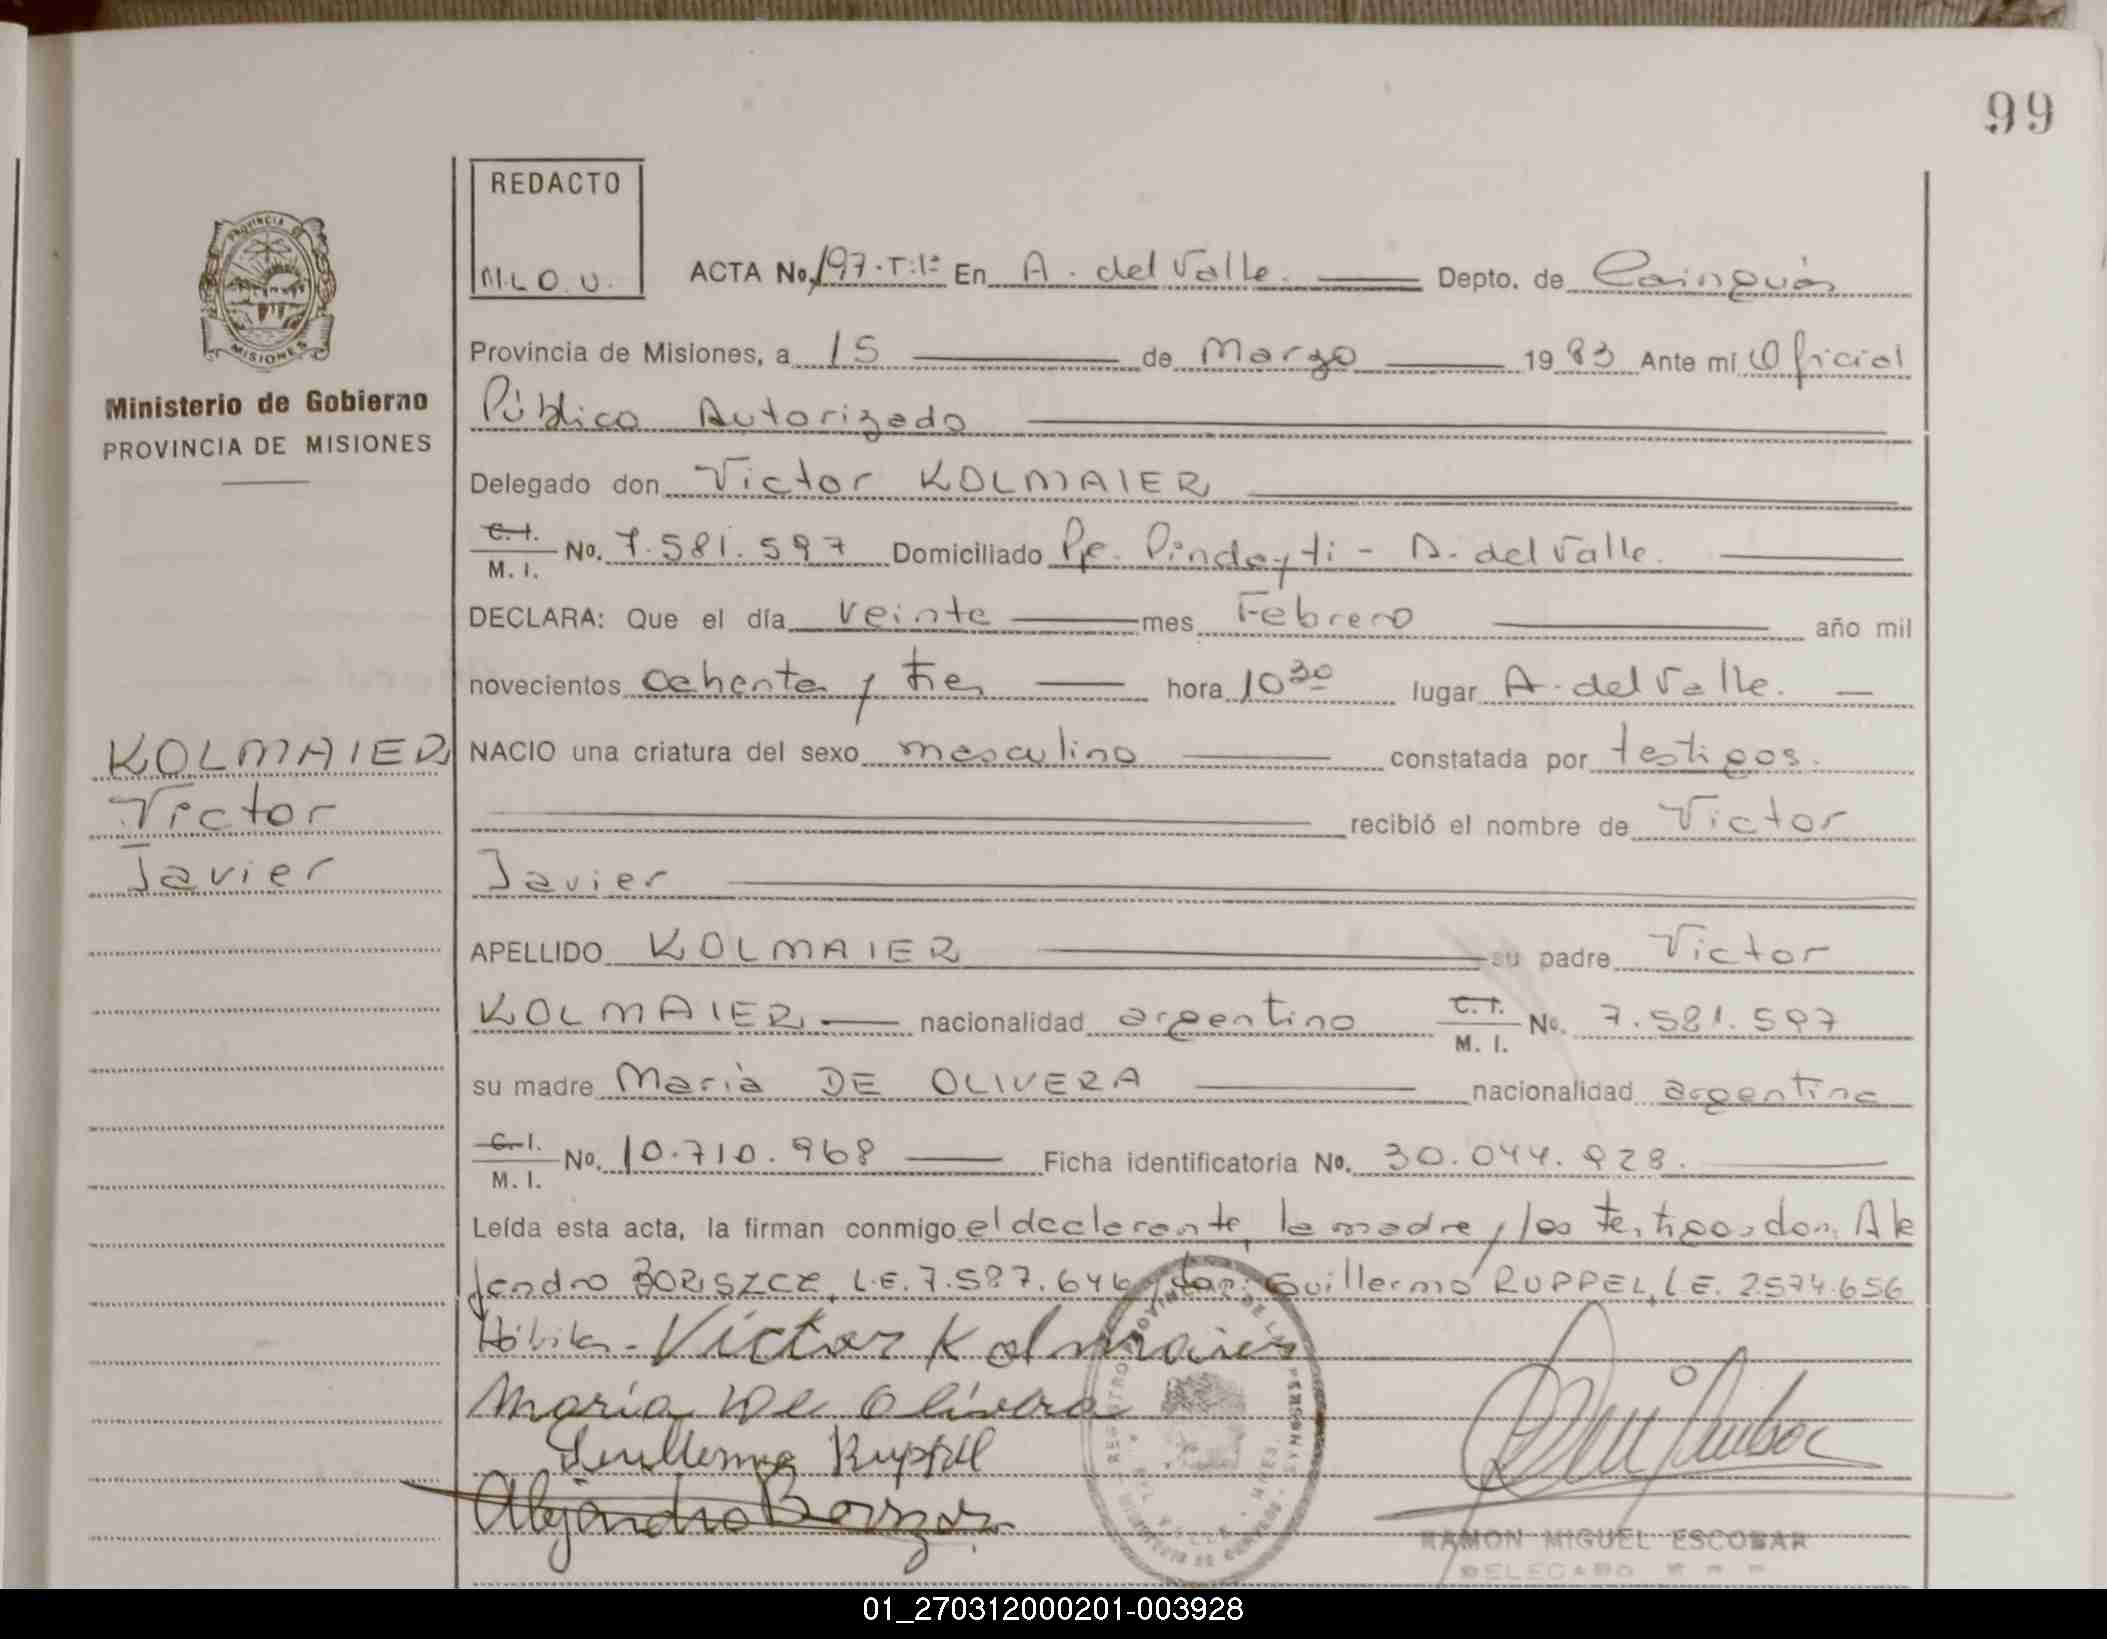 99
REDACTO
M.L.O.U.
PROVINCIA DE
MISIONES
Ministerio de Gobierno
PROVINCIA DE MISIONES
ACTA No. 197-T:1º En A. del Valle. Depto. de Cainguás
Provincia de Misiones, a 15 de Marzo 1983 Ante mí Oficial
Público Autorizado
Delegado don Victor KOLMAIER
C.I. M. I. No. 7.581.597 Domiciliado Pje. Pindayti - A. del Valle.
DECLARA: Que el día veinte mes Febrero año mil
novecientos ochenta y tres hora 10 30 lugar A. del Valle.
KOLMAIER
Victor
Javier
NACIO una criatura del sexo masculino constatada por testigos.
recibió el nombre de Victor
Javier
APELLIDO KOLMAIER su padre Victor
KOLMAIER nacionalidad argentino C.I. M. I. No. 7.581.597
su madre Maria DE OLIVERA nacionalidad argentina
C.I. M. I. No. 10.710.968 Ficha identificatoria No. 30.044.928.
Leída esta acta, la firman conmigo el declarante, la madre y los testigos, don: Ale
jandro BORISZCZ, L.E. 7.587.646 y don: Guillermo RUPPEL, L.E. 2.574.656
Hábiles - Victor Kolmaier
María De Olivera
Guillermo Ruppel
Alejandro
RAMON MIGUEL ESCOBAR
DELEGADO
01_270312000201-003928